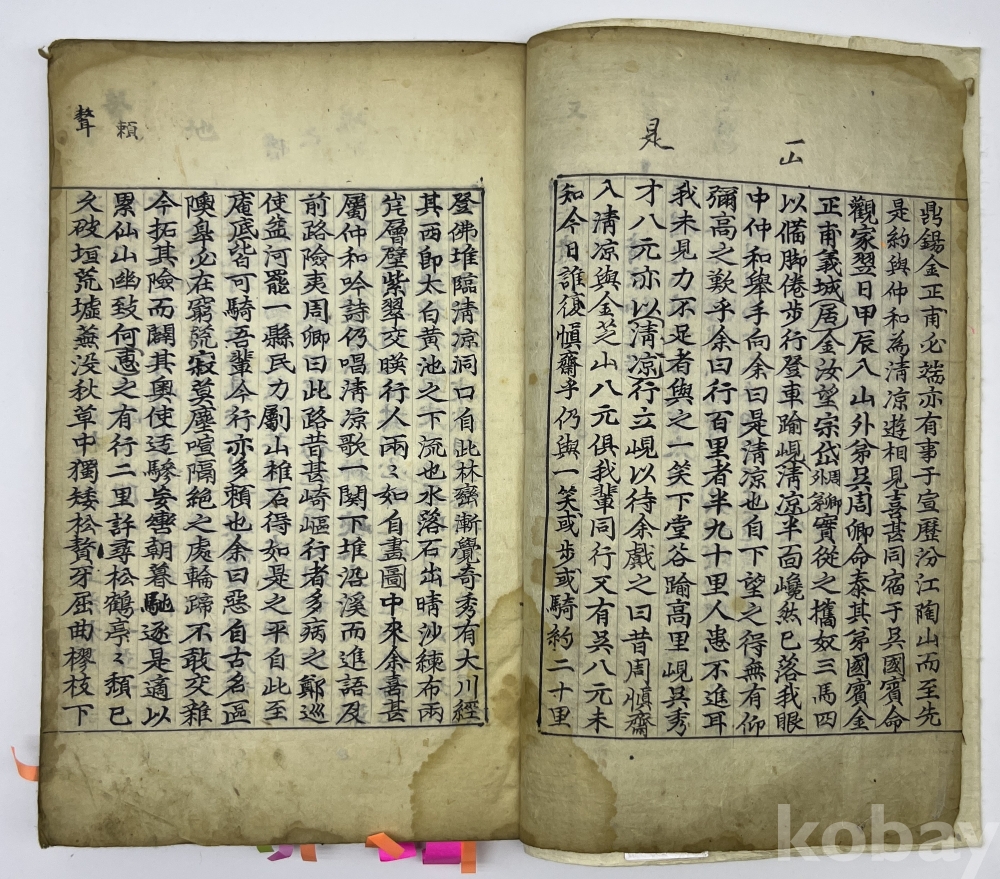 一山
是
鼎錫金正甫必端亦有事于宣歷汾江陶山而至先
是約與仲和為清凉遊相見喜甚同宿于吳國賓命
觀家翌日甲辰入山外弟吳周卿命泰其弟國賓金
正甫義城居金汝望宗岱周卿外弟實從之攜奴三馬四
以備脚倦步行登車踰峴清凉半面巉然已落我眼
中仲和舉手向余曰是清凉也自下望之得無有仰
彌高之歎乎余曰行百里者半九十里人患不進耳
我未見力不足者與之一笑下堂谷踰高里峴吳秀
才八元亦以清凉行立峴以待余戲之曰昔周愼齋
入清凉與金芝山八元俱我輩同行又有吳八元未
知今日誰復愼齋乎仍與一笑或步或騎約二十里
頼
聱
登佛堆臨清凉洞口自此林巒漸覺奇秀有大川經
其西即太白黃池之下流也水落石出晴沙練布兩
岸層壁紫翠交暎行人兩〻如自畫圖中來余喜甚
屬仲和吟詩仍唱清凉歌一関下堆沿溪而進語及
前路險夷周卿曰此路昔甚崎嶇行者多病之鄭巡
使益河罷一縣民力劚山椎石得如是之平自此至
庵底皆可騎吾輩今行亦多頼也余曰惡自古名區
隩臯必在窮荒寂寞塵喧隔絶之處輪蹄不敢交雜
今拓其險而闢其奧使适驂妄轡朝暮馳逐是適以
累仙山幽致何惠之有行二里許尋松鶴亭〻頹已
久破垣荒墟蕪没秋草中獨矮松贅牙屈曲樛枝下
kobay